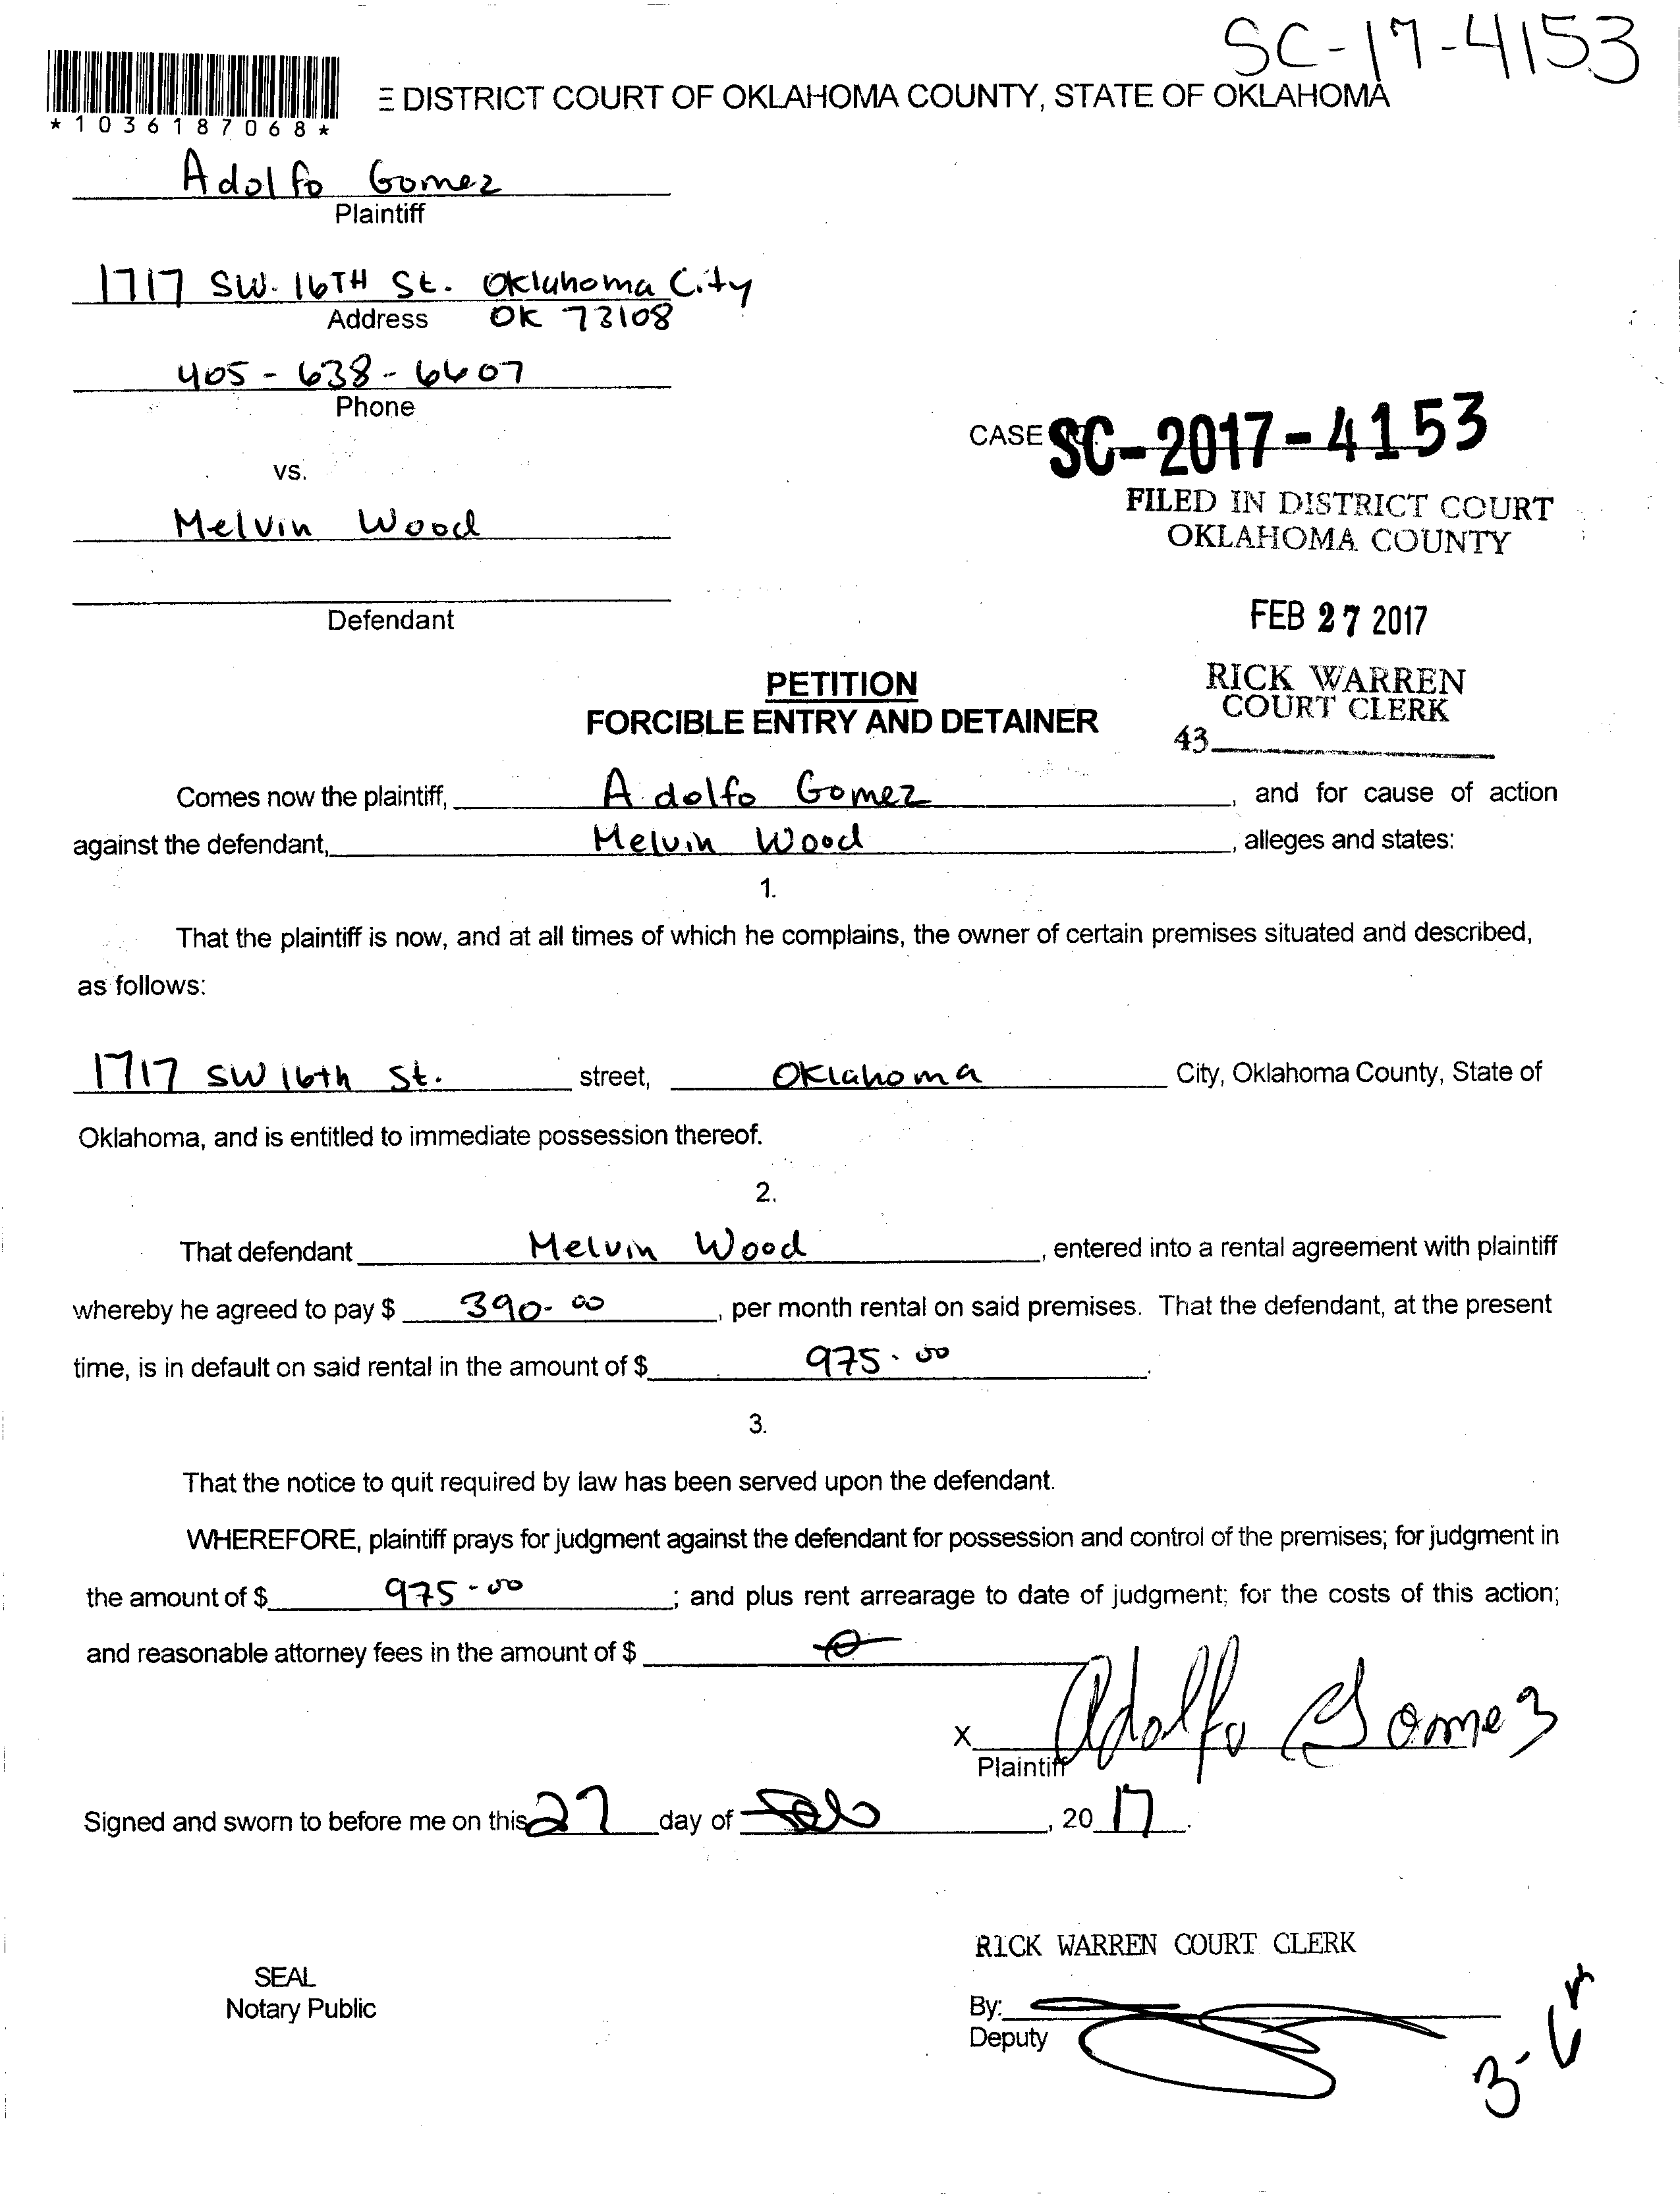 SC-17-4153
*1036187068*
E DISTRICT COURT OF OKLAHOMA COUNTY, STATE OF OKLAHOMA
Adolfo Gomez
Plaintiff
1717 SW. 16TH St. Oklahoma City
Address OK 73108
405-638-6607
Phone
CASE SC-2017-4153
vs.
FILED IN DISTRICT COURT
Melvin Wood
OKLAHOMA COUNTY
Defendant
FEB 27 2017
PETITION
RICK WARREN
COURT CLERK
FORCIBLE ENTRY AND DETAINER
43
Comes now the plaintiff, Adolfo Gomez, and for cause of action
against the defendant, Melvin Wood, alleges and states:
1.
That the plaintiff is now, and at all times of which he complains, the owner of certain premises situated and described,
as follows:
1717 SW 16th St. street, Oklahoma City, Oklahoma County, State of
Oklahoma, and is entitled to immediate possession thereof.
2.
That defendant Melvin Wood, entered into a rental agreement with plaintiff
whereby he agreed to pay $ 390.00, per month rental on said premises. That the defendant, at the present
time, is in default on said rental in the amount of $ 975.00.
3.
That the notice to quit required by law has been served upon the defendant.
WHEREFORE, plaintiff prays for judgment against the defendant for possession and control of the premises; for judgment in
the amount of $ 975-00; and plus rent arrearage to date of judgment; for the costs of this action;
and reasonable attorney fees in the amount of $ 0
x Adolfo Gomez
Plaintiff
Signed and sworn to before me on this 27 day of Feb, 2017.
RICK WARREN COURT CLERK
SEAL
Notary Public
By:
Deputy